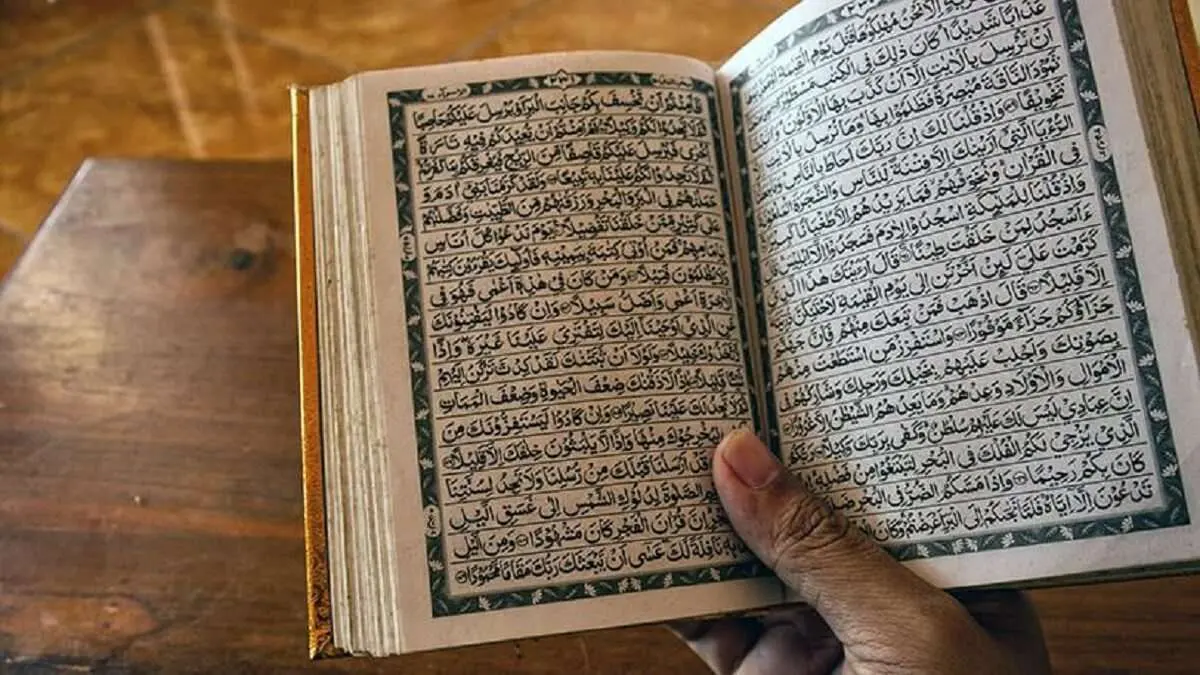 قَرْيَةٍ اِلَّا نَحْنُ مُهْلِكُوْهَا قَبْلَ يَوْمِ الْقِيٰمَةِ
عَذَابًا شَدِيْدًا كَانَ ذٰلِكَ فِى الْكِتٰبِ مَسْطُوْرًا
اَنْ نُّرْسِلَ بِالْاٰيٰتِ اِلَّآ اَنْ كَذَّبَ بِهَا الْاَوَّلُوْنَ وَاٰتَيْنَا
ثَمُوْدَ النَّاقَةَ مُبْصِرَةً فَظَلَمُوْا بِهَا وَمَا نُرْسِلُ بِالْاٰيٰتِ
تَخْوِيْفًا ۝٥٩ وَاِذْ قُلْنَا لَكَ اِنَّ رَبَّكَ اَحَاطَ بِالنَّاسِ وَمَا
الرُّءْيَا الَّتِيْٓ اَرَيْنٰكَ اِلَّا فِتْنَةً لِّلنَّاسِ وَالشَّجَرَةَ الْمَلْعُوْنَةَ
فِى الْقُرْاٰنِ وَنُخَوِّفُهُمْ فَمَا يَزِيْدُهُمْ اِلَّا طُغْيَانًا كَبِيْرًا
وَاِذْ قُلْنَا لِلْمَلٰٓئِكَةِ اسْجُدُوْا لِاٰدَمَ فَسَجَدُوْٓا اِلَّآ اِبْلِيْسَ
ءَاَسْجُدُ لِمَنْ خَلَقْتَ طِيْنًا ۝٦١ قَالَ اَرَءَيْتَكَ هٰذَا الَّذِيْ
كَرَّمْتَ عَلَيَّ لَئِنْ اَخَّرْتَنِ اِلٰى يَوْمِ الْقِيٰمَةِ لَاَحْتَنِكَنَّ
اِلَّا قَلِيْلًا ۝٦٢ قَالَ اذْهَبْ فَمَنْ تَبِعَكَ مِنْهُمْ فَاِنَّ جَهَنَّمَ
جَزَآؤُكُمْ جَزَآءً مَّوْفُوْرًا ۝٦٣ وَاسْتَفْزِزْ مَنِ اسْتَطَعْتَ مِنْهُمْ
بِصَوْتِكَ وَاَجْلِبْ عَلَيْهِمْ بِخَيْلِكَ وَرَجِلِكَ وَشَارِكْهُمْ فِى
الْاَمْوَالِ وَالْاَوْلَادِ وَعِدْهُمْ وَمَا يَعِدُهُمُ الشَّيْطٰنُ اِلَّا غُرُوْرًا
اِنَّ عِبَادِيْ لَيْسَ لَكَ عَلَيْهِمْ سُلْطٰنٌ وَكَفٰى بِرَبِّكَ وَكِيْلًا ۝٦٥ رَبُّكُمُ
الَّذِيْ يُزْجِيْ لَكُمُ الْفُلْكَ فِى الْبَحْرِ لِتَبْتَغُوْا مِنْ فَضْلِهٖ اِنَّهٗ
كَانَ بِكُمْ رَحِيْمًا ۝٦٦ وَاِذَا مَسَّكُمُ الضُّرُّ فِى الْبَحْرِ ضَلَّ
تَدْعُوْنَ اِلَّآ اِيَّاهُ فَلَمَّا نَجّٰىكُمْ اِلَى الْبَرِّ اَعْرَضْتُمْ وَكَانَ
اَفَاَمِنْتُمْ اَنْ يَّخْسِفَ بِكُمْ جَانِبَ الْبَرِّ اَوْ يُرْسِلَ عَلَيْكُمْ حَاصِبًا
ثُمَّ لَا تَجِدُوْا لَكُمْ وَكِيْلًا ۝٦٨ اَمْ اَمِنْتُمْ اَنْ يُّعِيْدَكُمْ فِيْهِ تَارَةً
اُخْرٰى فَيُرْسِلَ عَلَيْكُمْ قَاصِفًا مِّنَ الرِّيْحِ فَيُغْرِقَكُمْ بِمَا كَفَرْتُمْ
ثُمَّ لَا تَجِدُوْا لَكُمْ عَلَيْنَا بِهٖ تَبِيْعًا ۝٦٩ وَلَقَدْ كَرَّمْنَا بَنِيْٓ اٰدَمَ وَ
حَمَلْنٰهُمْ فِى الْبَرِّ وَالْبَحْرِ وَرَزَقْنٰهُمْ مِّنَ الطَّيِّبٰتِ وَفَضَّلْنٰهُمْ
عَلٰى كَثِيْرٍ مِّمَّنْ خَلَقْنَا تَفْضِيْلًا ۝٧٠ يَوْمَ نَدْعُوْا كُلَّ اُنَاسٍ
بِاِمَامِهِمْ فَمَنْ اُوْتِيَ كِتٰبَهٗ بِيَمِيْنِهٖ فَاُولٰٓئِكَ يَقْرَءُوْنَ كِتٰبَهُمْ
وَلَا يُظْلَمُوْنَ فَتِيْلًا ۝٧١ وَمَنْ كَانَ فِيْ هٰذِهٖٓ اَعْمٰى فَهُوَ فِى
الْاٰخِرَةِ اَعْمٰى وَاَضَلُّ سَبِيْلًا ۝٧٢ وَاِنْ كَادُوْا لَيَفْتِنُوْنَكَ
عَنِ الَّذِيْٓ اَوْحَيْنَآ اِلَيْكَ لِتَفْتَرِيَ عَلَيْنَا غَيْرَهٗ وَاِذًا
لَّاتَّخَذُوْكَ خَلِيْلًا ۝٧٣ وَلَوْلَآ اَنْ ثَبَّتْنٰكَ لَقَدْ كِدْتَّ تَرْكَنُ اِلَيْهِمْ
شَيْئًا قَلِيْلًا ۝٧٤ اِذًا لَّاَذَقْنٰكَ ضِعْفَ الْحَيٰوةِ وَضِعْفَ الْمَمَاتِ
ثُمَّ لَا تَجِدُ لَكَ عَلَيْنَا نَصِيْرًا ۝٧٥ وَاِنْ كَادُوْا لَيَسْتَفِزُّوْنَكَ مِنَ
لِيُخْرِجُوْكَ مِنْهَا وَاِذًا لَّا يَلْبَثُوْنَ خِلٰفَكَ اِلَّا قَلِيْلًا ۝٧٦
قَدْ اَرْسَلْنَا قَبْلَكَ مِنْ رُّسُلِنَا وَلَا تَجِدُ لِسُنَّتِنَا
الصَّلٰوةَ لِدُلُوْكِ الشَّمْسِ اِلٰى غَسَقِ الَّيْلِ
اِنَّ قُرْاٰنَ الْفَجْرِ كَانَ مَشْهُوْدًا ۝٧٨ وَمِنَ الَّيْلِ
بِهٖ نَافِلَةً لَّكَ عَسٰٓى اَنْ يَّبْعَثَكَ رَبُّكَ مَقَامًا مَّحْمُوْدًا ۝٧٩